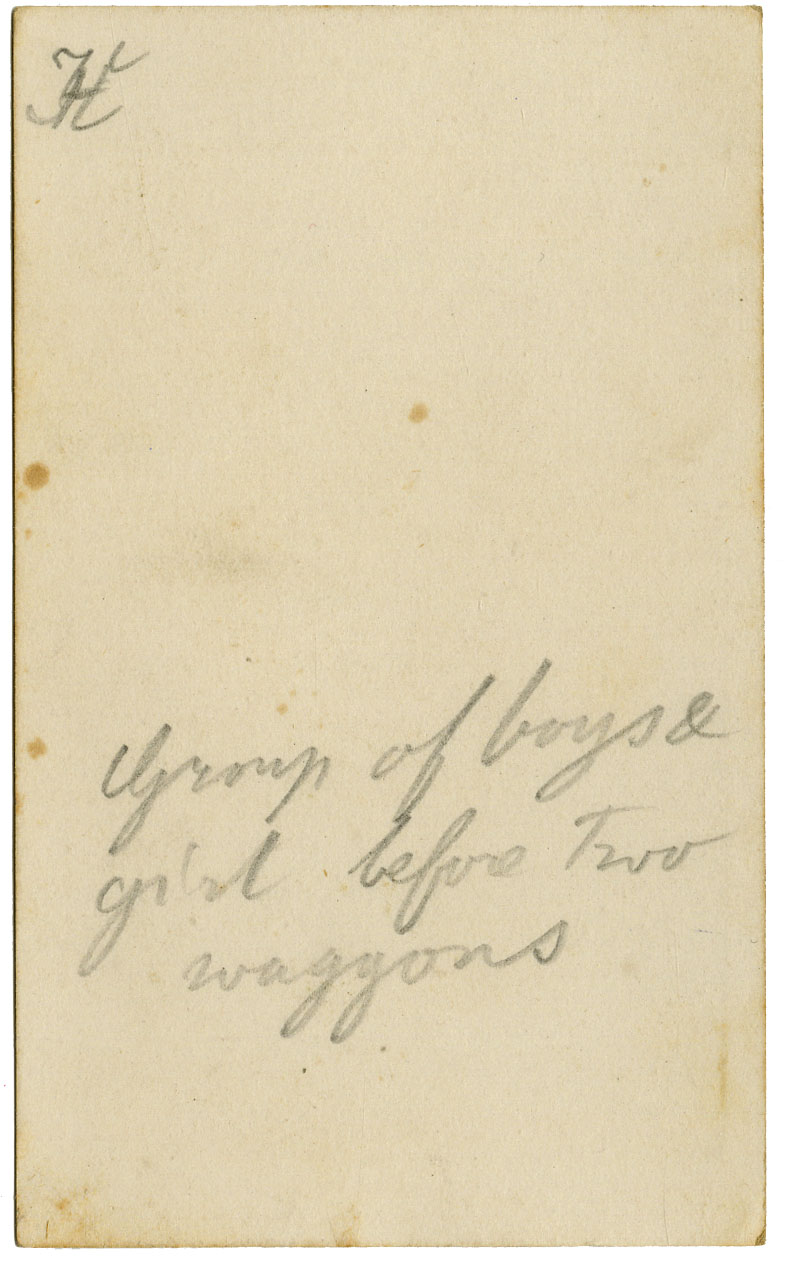 H
Group of boys &
girl before Two
waggons